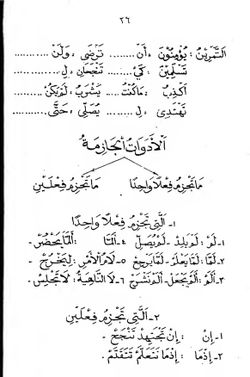 ٢٦
التَّمْرِينُ : يُؤْمِنُونَ ، أَنْ ........ تَرْضَى ، وَلَنْ ........
تَسْلَمِينَ . كَيْ ........ تَنْعَمَانِ ، لِ ........
أَكْذِبُ . مَا كُنْتُ ........ يَشْرَبُ . لَمْ يَكُنْ ........
تَهْتَدِي ، لِ ........ يُصَلِّي ، حَتَّى ........
اَلْأَدَوَاتُ الْجَازِمَةُ
مَا تَجْزِمُ فِعْلًا وَاحِدًا مَا تَجْزِمُ فِعْلَيْنِ
١- الَّتِي تَجْزِمُ فِعْلًا وَاحِدًا
١- لَمْ : لَمْ يَلِدْ . لَمْ يُصَلِّ ٤- أَلَمَّا : أَلَمَّا يَحْضُرْ .
٢- لَمَّا : لَمَّا يَعْلَمْ . لَمَّا يَرْجِعْ ٥- لَامُ الْأَمْرِ : لِيَخْرُجْ .
٣- أَلَمْ : أَلَمْ يَجْعَلْ . أَلَمْ نَشْرَحْ ٦- لَا النَّاهِيَةُ : لَا تَجْلِسْ .
٢- الَّتِي تَجْزِمُ فِعْلَيْنِ
١- إِنْ : إِنْ تَجْتَهِدْ تَنْجَحْ .
٢- إِذْمَا : إِذْمَا تَتَعَلَّمْ تَتَقَدَّمْ .